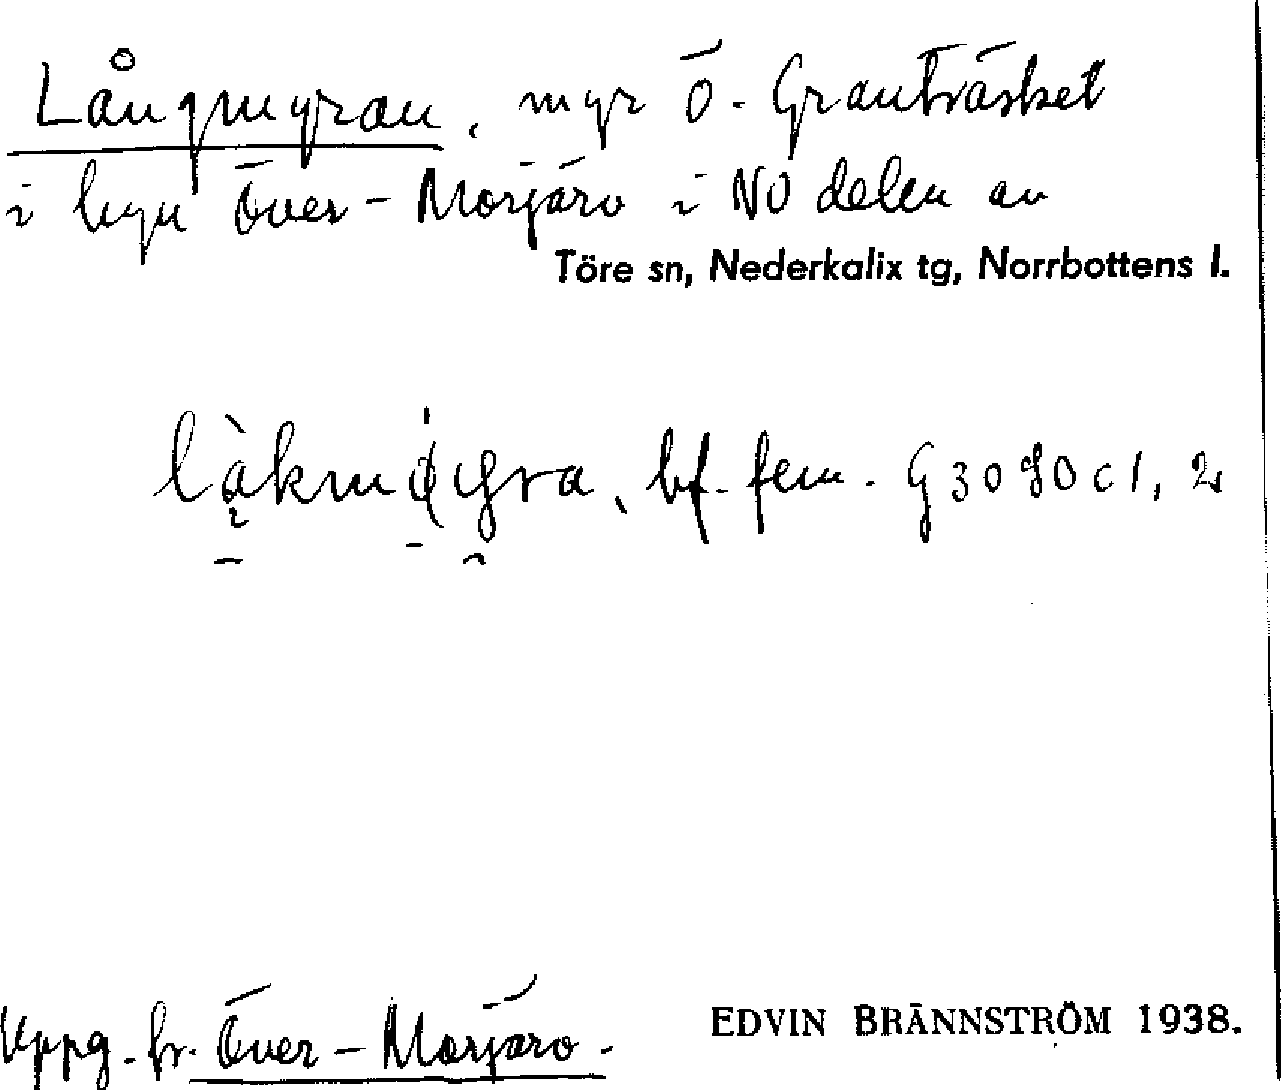 Långmyran, myr Ö. Granträsket
i byn Över-Morjärv i NÖ delen av
Töre sn, Nederkalix tg, Norrbottens l.
bf. fem. G3080c1, 2
Uppg. fr. Över-Morjärv.
EDVIN BRÄNNSTRÖM 1938.